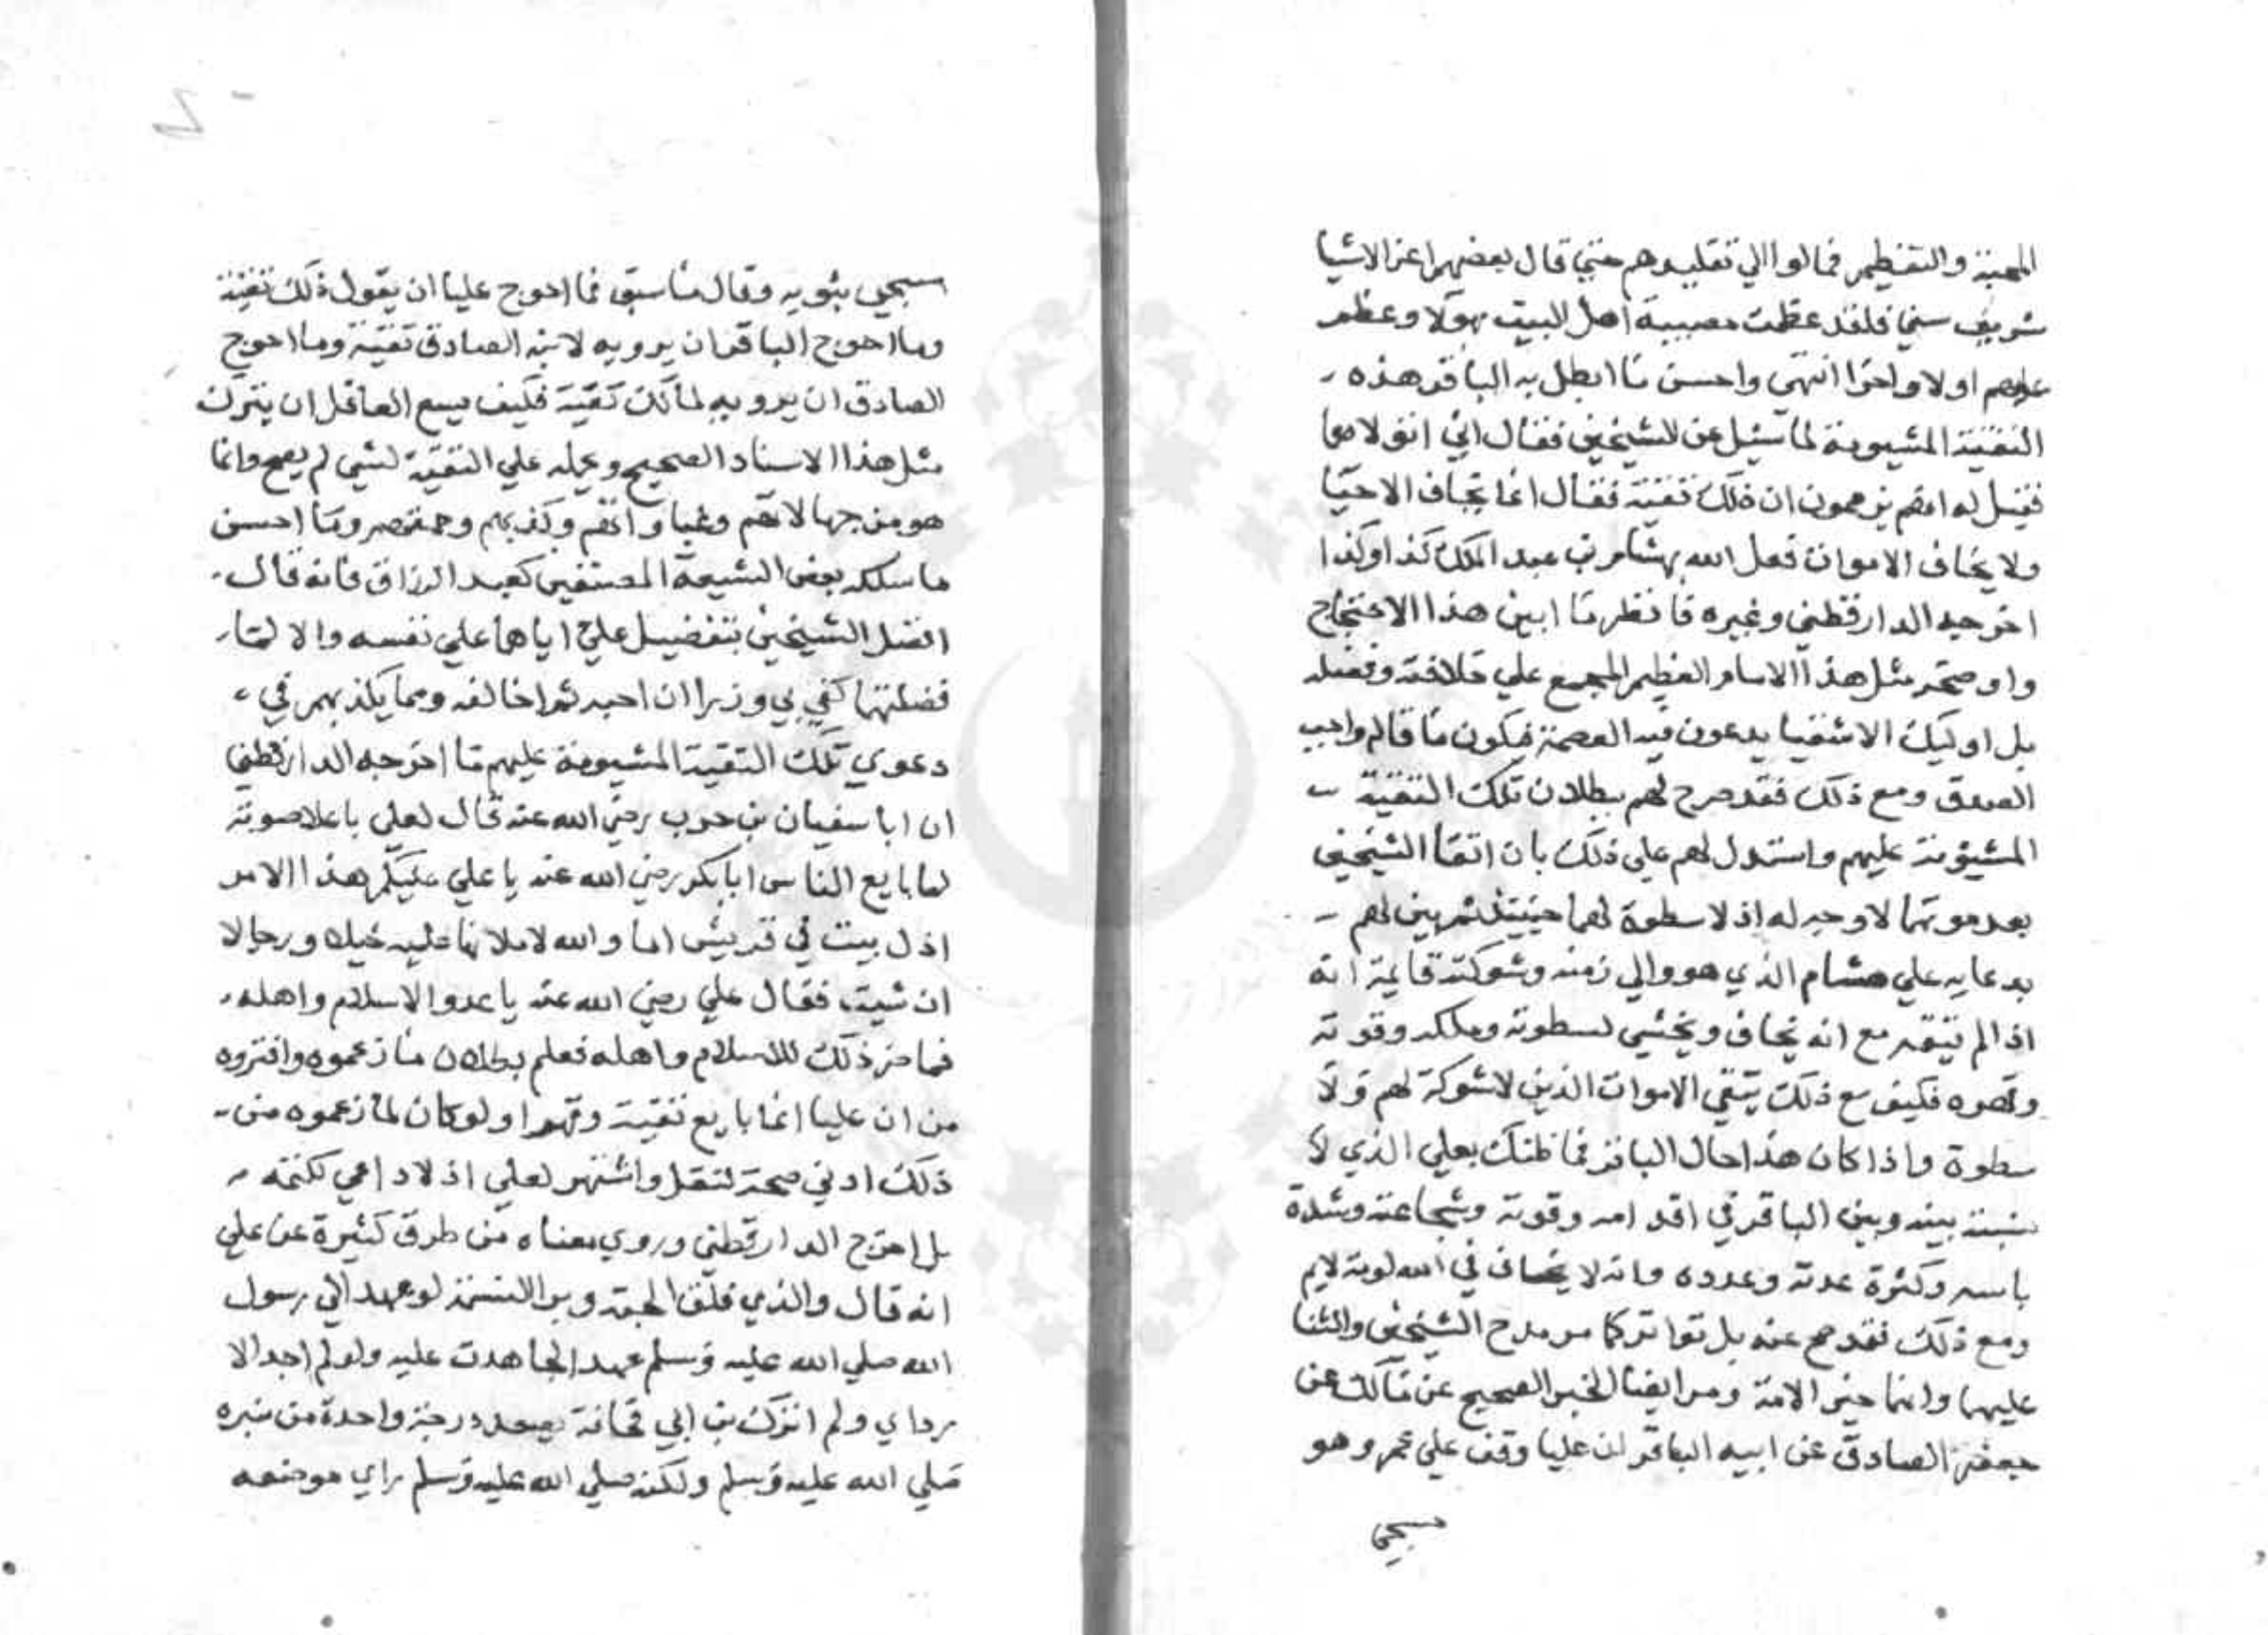 المحبة والتعظيم فمالوا الي تقليدهم حتي قال بعضهم اعز الاشيا
شريف سني فلقد عظمت مصيبة اهل البيت بهولا وعظم
عليهم اولا واخرا انتهي واحسن ما ابطل به الباقر هذه
التقية المشيومة لما سئل عن الشيخين فقال اني اتولاهما
فقيل له انهم يزعمون ان ذلك تقية فقال انما يخاف الاحيا
ولا يخاف الاموات فعل الله بهشام بن عبد الملك كذا وكذا
اخرجه الدارقطني وغيره فانظر ما ابين هذا الاحتجاج
واوضحه مثل هذا الامام العظيم المجمع علي جلالته وفضله
بل اوليك الاشقيا يدعون فيه العصمة فيكون ما قاله واجب
الصدق ومع ذلك فقد صرح لهم ببطلان تلك التقية
المشيومة عليهم واستدل لهم علي ذلك بان اتقا الشيخين
بعد موتهما لا وجه له اذ لا سطوة لهما حينيذ ثم بين لهم
بدعايه علي هشام الذي هو والي زمنه وشوكته قايمة انه
اذا لم يتقه مع انه يخاف ويخشي لسطوته وملكه وقوته
وقهره فكيف مع ذلك يتقي الاموات الذين لا شوكة لهم ولا
سطوة واذا كان هذا حال الباقر فما ظنك بعلي الذي لا
نسبة بينه وبين الباقر في اقدامه وقوته وشجاعته وشدة
باسه وكثرة عدته وعدده وانه لا يخاف في الله لومة لايم
ومع ذلك فقد صح عنه بل تواتر كما مر مدح الشيخين والثنا
عليهما وانهما خير الامة ومر ايضا الخبر الصحيح عن مالك عن
جعفر الصادق عن ابيه الباقر ان عليا وقف علي عمر وهو
مسجي
مسجي بثوبه وقال ما سبق فما احوج عليا ان يقول ذلك تقية
وما احوج الباقر ان يرويه لابنه الصادق تقية وما احوج
الصادق ان يرويه لمالك تقية فكيف يسع العاقل ان يترك
مثل هذا الاسناد الصحيح ويحمله علي التقية لشي لم يصح وانما
هو من جهالاتهم وغباواتهم وكذبهم وحمقهم وما احسن
ما سلكه بعض الشيعة المصنفين كعبد الرزاق فانه قال
افضل الشيخين بتفضيل علي اياهما علي نفسه والا لما
فضلتهما كفي بي وزرا ان احبه ثم اخالفه ومما يكذبهم في
دعوي تلك التقية المشيومة عليهم ما اخرجه الدارقطني
ان ابا سفيان بن حرب رضي الله عنه قال لعلي باعلا صوته
لما بايع الناس ابا بكر رضي الله عنه يا علي غلبكم هذا الامر
اذل بيت في قريش اما والله لاملانها عليه خيلا ورجالا
ان شيت فقال علي رضي الله عنه يا عدو الاسلام واهله
فما ضر ذلك للاسلام واهله فعلم بطلان ما زعموه وافتروه
من ان عليا انما بايع تقية وقهرا ولو كان لما زعموه من
ذلك ادني صحة لنقل واشتهر لعلي اذ لا داعي لكتمه
بل اخرج الدارقطني وروي معناه من طرق كثيرة عن علي
انه قال والذي فلق الحبة وبرا النسمة لو عهد الي رسول
الله صلي الله عليه وسلم عهدا لجاهدت عليه ولو لم اجد الا
رداي ولم اترك بن ابي قحافة يصعد درجة واحدة من منبره
صلي الله عليه وسلم ولكنه صلي الله عليه وسلم راي موضعه